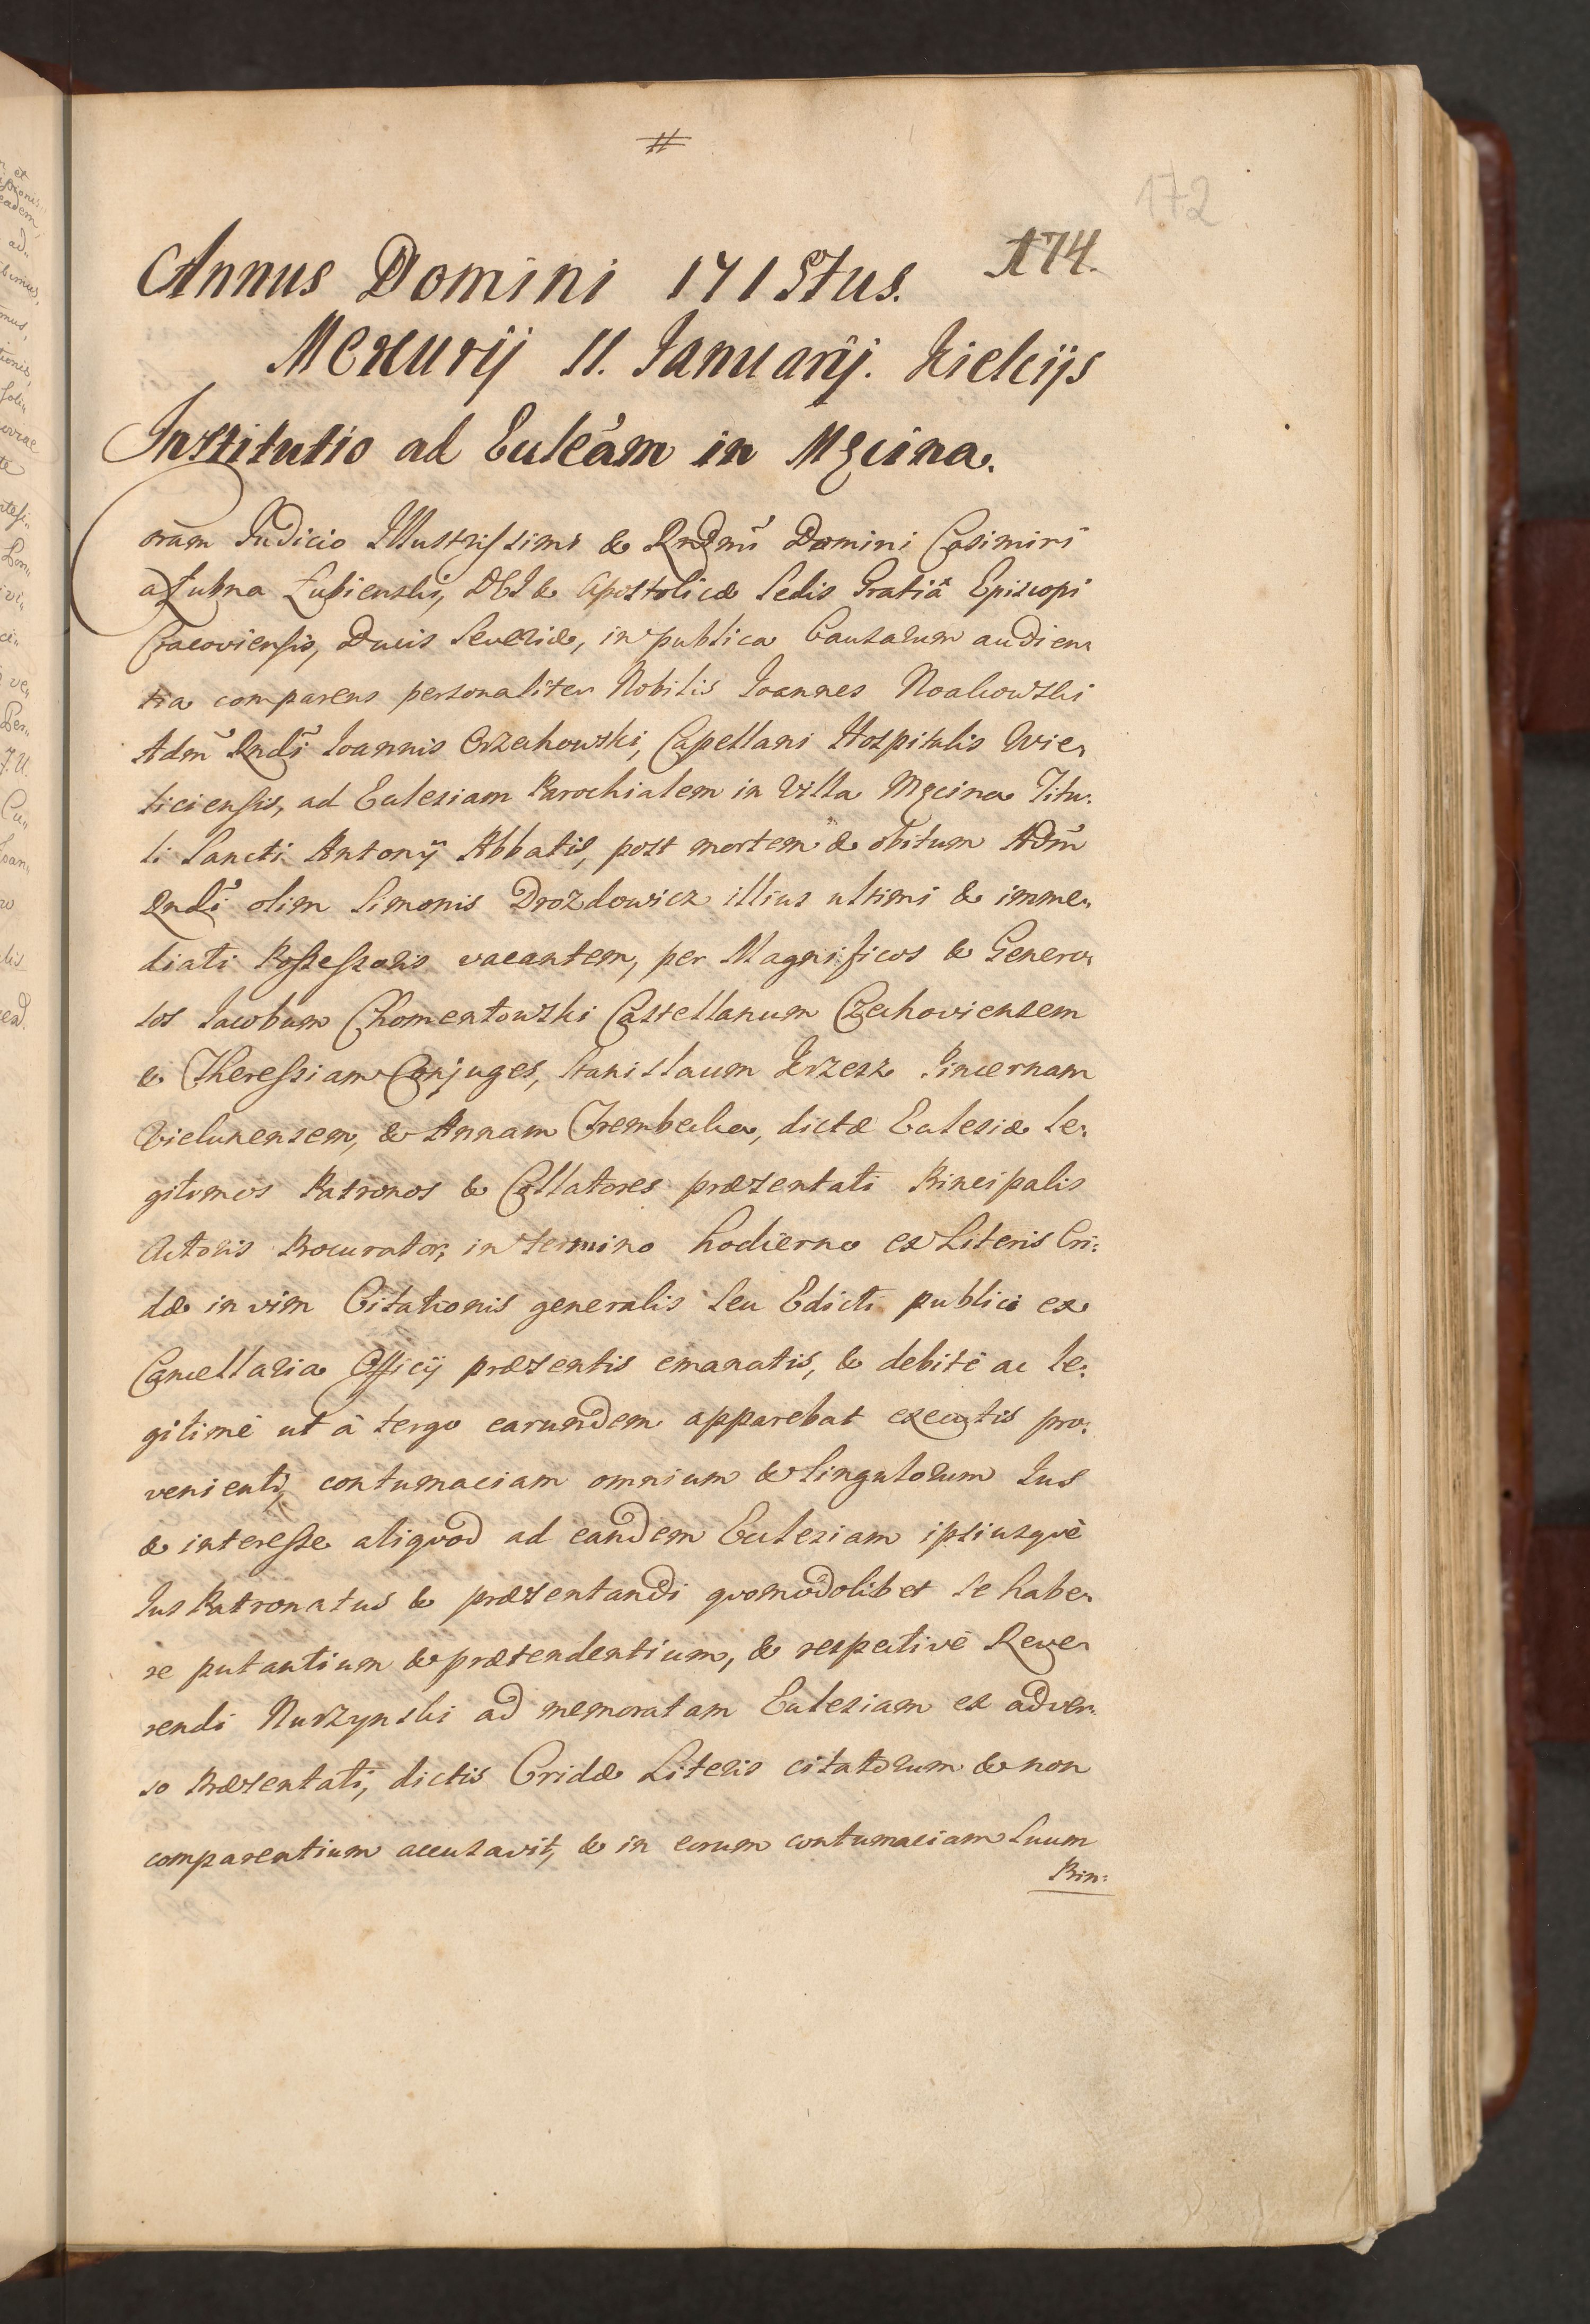 #
172
174.
Annus Domini 1713tius.
Mercurij 11. Januarij. Kielcijs
Institutio ad Eccleam in Mzcina.
Coram Judicio Illustrissimi & Rndmi Domini Casimiri
a Lubna Łubienski, DEI & Apostolicæ Sedis Gratiâ Episcopi
Cracoviensis, Ducis Severiæ, in publica Causarum audien-
tia comparens personaliter Nobilis Joannes Noakowski
Adm Rndi Joannis Orzechowski, Capellani Hospitalis Wie-
liciensis, ad Ecclesiam Parochialem in Villa Mzcina Titu-
li Sancti Antonij Abbatis, post mortem & obitum Adm
Rndi olim Simonis Drozdowicz illius ultimi & imme-
diati Possessoris vacantem, per Magnificos & Genero-
sos Jacobum Chomentowski Castellanum Czechoviensem
& Theressiam Conjuges, Stanislaum Krzesz Pincernam
Vielunensem, & Annam Trembecka, dictæ Ecclesiæ le-
gitimos Patronos & Collatores præsentati Principalis
Actoris Procurator, in termino hodierno ex Literis Cri-
dæ in vim Citationis generalis seu Edicti publici ex
Cancellaria Officij præsentis emanatis, & debitè ac le-
gitimè ut à tergo earundem apparebat executis pro-
venienti, contumaciam omnium & singulorum Jus
& interesse aliquod ad eandem Ecclesiam ipsiusquè
Jus Patronatus & præsentandi quomodolibet se habe-
re putantium & prætendentium, & respectivè Reve-
rendi Nurzynski ad memoratam Ecclesiam ex adver-
so Præsentati, dictis Cridæ Literis citatorum & non
comparentium accusavit, & in eorum contumaciam Suum
Prin: